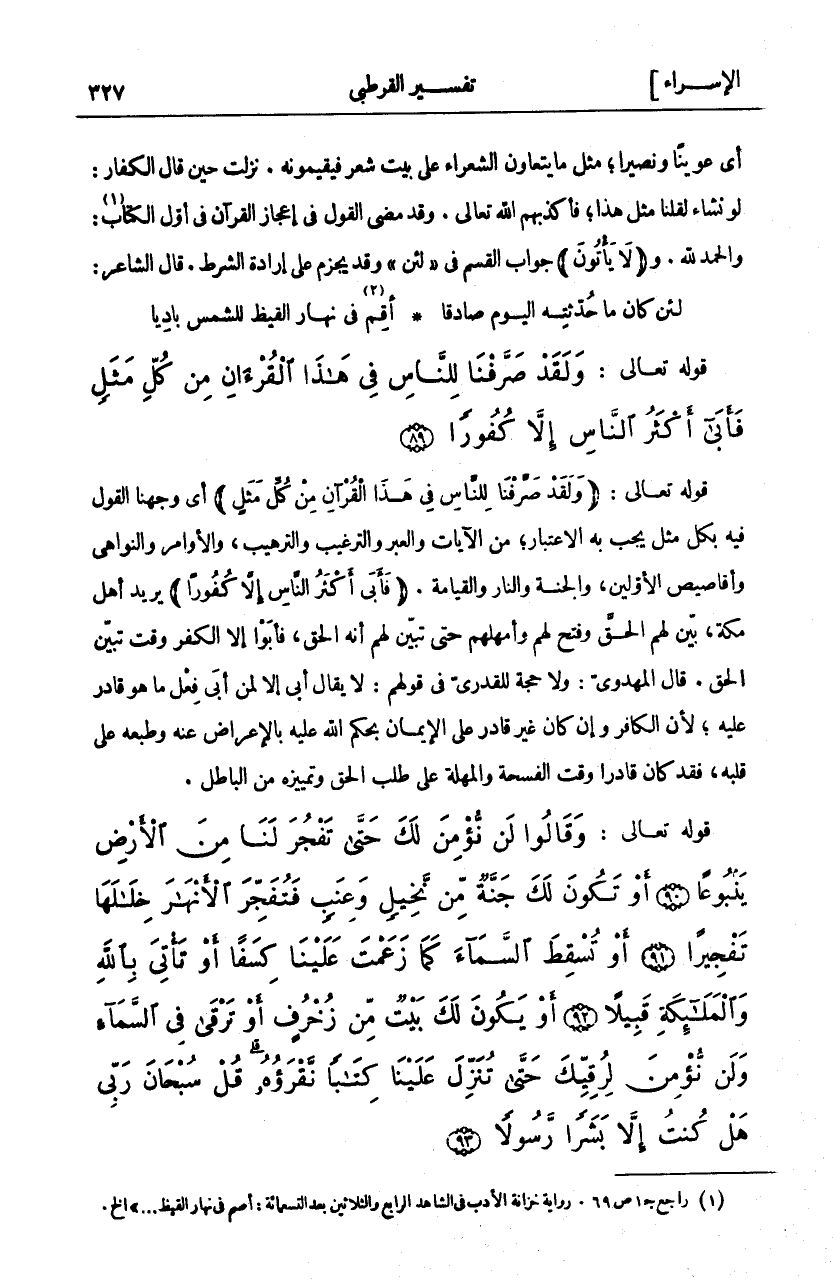 الإســراء ] تفســير القرطبى ٣٢٧
أى عوينًا ونصيرا؛ مثل ما يتعاون الشعراء على بيت شعر فيقيمونه . نزلت حين قال الكفار :
لو نشاء لقلنا مثل هذا؛ فأكذبهم الله تعالى . وقد مضى القول فى إعجاز القرآن فى أوّل الكتاب(١):
والحمد لله . و﴿ لَا يَأْتُونَ ﴾ جواب القسم فى « لئن » وقد يجزم على إرادة الشرط . قال الشاعر :
لئن كان ما حُدّثتِـه اليـوم صادقا * أقِم(٢) فى نهار القيظ للشمس بادِيا
قوله تعـالى : وَلَقَدْ صَرَّفْنَا لِلنَّاسِ فِى هَـٰذَا ٱلْقُرْءَانِ مِن كُلِّ مَثَلٍ
فَأَبَىٰٓ أَكْثَرُ ٱلنَّاسِ إِلَّا كُفُورًا ٨٩
قوله تعـالى : ﴿ وَلَقَدْ صَرَّفْنَا لِلنَّاسِ فِى هَـذَا الْقُرْآنِ مِنْ كُلِّ مَثَلٍ ﴾ أى وجهنا القول
فيه بكل مثل يجب به الاعتبار؛ من الآيات والعبر والترغيب والترهيب، والأوامر والنواهى
وأقاصيص الأوّلين، والجنـة والنار والقيامة . ﴿ فَأَبَى أَكْثَرُ النَّاسِ إِلَّا كُفُورًا ﴾ يريد أهل
مكة، بيّن لهم الحـقّ وفتح لهم وأمهلهم حتى تبيّن لهم أنه الحق، فأبَوْا إلا الكفر وقت تبيّن
الحق . قال المهدوىّ : ولا حجة للقدرىّ فى قولهم : لا يقال أبى إلا لمن أبَى فِعْل ما هو قادر
عليه ؛ لأن الكافر وإن كان غير قادر على الإيمـان بحكم الله عليه بالإعراض عنه وطبعه على
قلبه، فقد كان قادرا وقت الفسحة والمهلة على طلب الحق وتمييزه من الباطل .
قوله تعـالى : وَقَالُوا لَن نُّؤْمِنَ لَكَ حَتَّىٰ تَفْجُرَ لَنَا مِنَ ٱلْأَرْضِ
يَنۢبُوعًا ٩٠ أَوْ تَكُونَ لَكَ جَنَّةٌ مِّن نَّخِيلٍ وَعِنَبٍ فَتُفَجِّرَ ٱلْأَنْهَـٰرَ خِلَـٰلَهَا
تَفْجِيرًا ٩١ أَوْ تُسْقِطَ ٱلسَّمَآءَ كَمَا زَعَمْتَ عَلَيْنَا كِسَفًا أَوْ تَأْتِىَ بِٱللَّهِ
وَٱلْمَلَـٰٓئِكَةِ قَبِيلًا ٩٢ أَوْ يَكُونَ لَكَ بَيْتٌ مِّن زُخْرُفٍ أَوْ تَرْقَىٰ فِى ٱلسَّمَآءِ
وَلَن نُّؤْمِنَ لِرُقِيِّكَ حَتَّىٰ تُنَزِّلَ عَلَيْنَا كِتَـٰبًا نَّقْرَؤُهُۥ ۗ قُلْ سُبْحَانَ رَبِّى
هَلْ كُنتُ إِلَّا بَشَرًا رَّسُولًا ٩٣
(١) راجع جـ١ ص ٦٩ . رواية خزانة الأدب فى الشاهد الرابع والثلاثين بعد التسعمائة : أصم فى نهار القيظ ... » الخ .